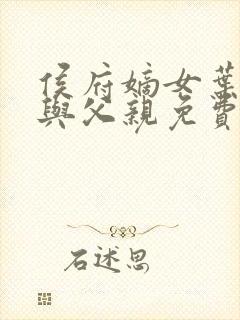 侯府嫡女葉
與父親免費
石述思